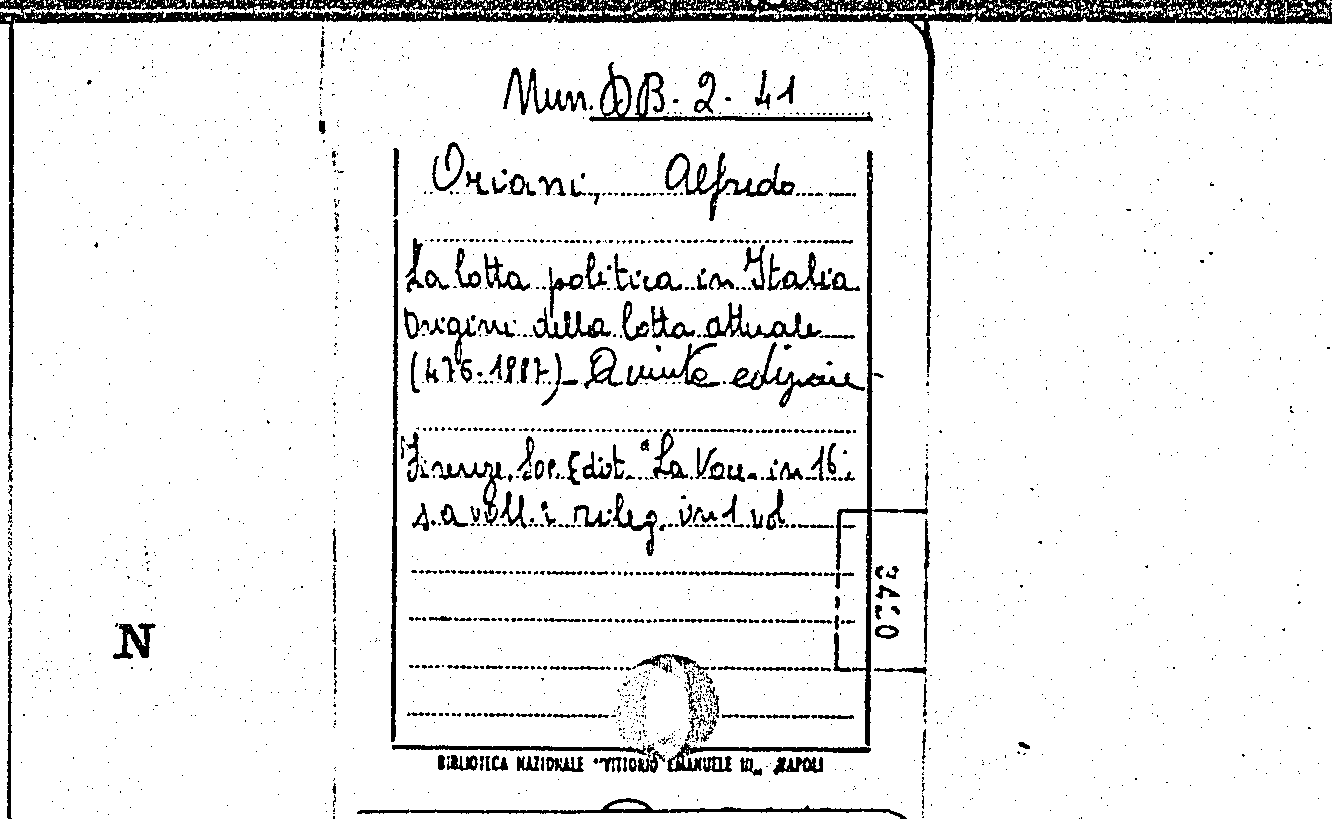 Mun. DB. 2. 41
Oriani, Alfredo
La lotta politica in Italia
Origini della lotta attuale
(476-1887)- Quinta edizione
Firenze, Soc. Edit. "La Voce. in 16.
s.a voll. i rileg. in 1 vol
N
BIBLIOTECA NAZIONALE "VITTORIO EMANUELE III" NAPOLI